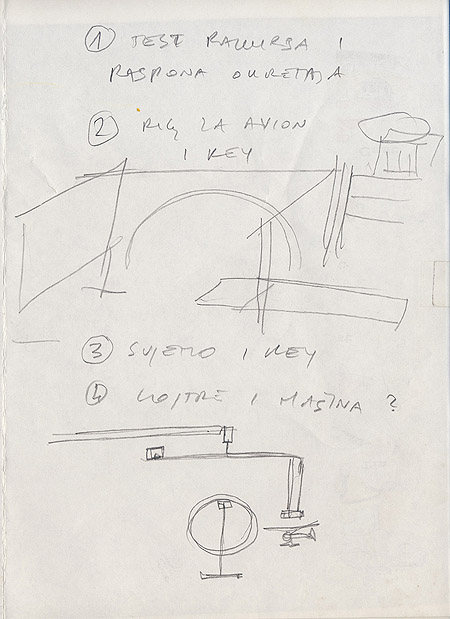 ① TEST RAKURSA I
RASPONA OKRETAJA
② RIG ZA AVION
I KEY
③ SVJETLO I KEY
④ I MAŠINA ?